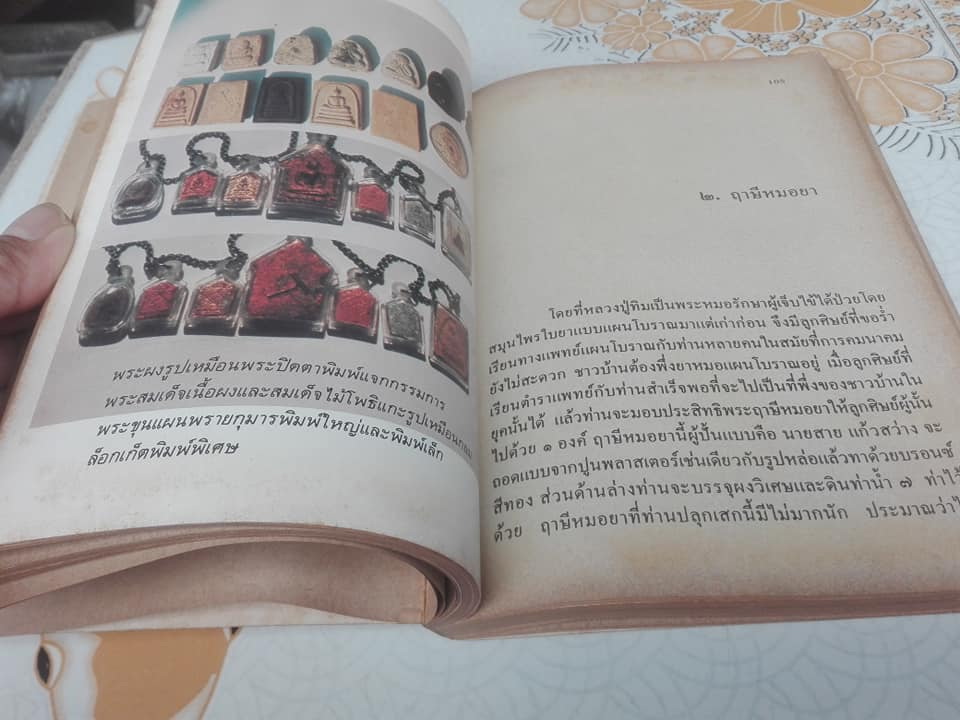 พระผงรูปเหมือนพระปิดตาพิมพ์แจกกรรมการ
พระสมเด็จเนื้อผงและสมเด็จไม้โพธิแกะรูปเหมือนกลม
พระขุนแผนพรายกุมารพิมพ์ใหญ่และพิมพ์เล็ก
ล็อกเก็ตพิมพ์พิเศษ
๒. ฤาษีหมอยา
โดยที่หลวงปู่ทิมเป็นพระหมอรักษาผู้เจ็บไข้ได้ป่วยโดย
สมุนไพรใบยาแบบแผนโบราณมาแต่เก่าก่อน จึงมีลูกศิษย์ที่ขอร่ำ
เรียนทางแพทย์แผนโบราณกับท่านหลายคนในสมัยที่การคมนาคม
ยังไม่สะดวก ชาวบ้านต้องพึ่งยาหมอแผนโบราณอยู่ เมื่อลูกศิษย์ที่
เรียนตำราแพทย์กับท่านสำเร็จพอที่จะไปเป็นที่พึ่งของชาวบ้านใน
ยุคนั้นได้ แล้วท่านจะมอบประสิทธิพระฤาษีหมอยาให้ลูกศิษย์ผู้นั้น
ไปด้วย ๑ องค์ ฤาษีหมอยานี้ผู้ปั้นแบบคือ นายสาย แก้วสว่าง จะ
ถอดแบบจากปูนพลาสเตอร์เช่นเดียวกับรูปหล่อแล้วทาด้วยบรอนซ์
สีทอง ส่วนด้านล่างท่านจะบรรจุผงวิเศษและดินท่าน้ำ ๗ ท่าไว้
ด้วย ฤาษีหมอยาที่ท่านปลุกเสกนี้มีไม่มากนัก ประมาณว่า